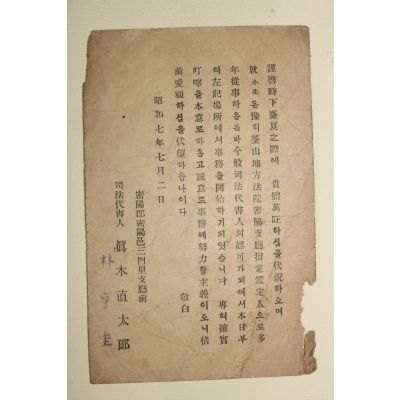 謹啓時下盛夏之際에 貴體萬旺하심을伏祝하오며
就小生은豫히釜山地方法院密陽支廳指定鑑定人으로多
年從事하옵든바今般司法代書人의認可가되여서本日부
터左記場所에서事務를開始하기되엿습니다 專혀確實
叮嚀을本意로하옵고誠意로事務에努力할主義이오니倍
前愛顧하심을伏望하옵나이다
敬白
昭和七年七月二日
密陽郡密陽邑三門里支廳前
司法代書人 眞木直太郎
朴亨圭